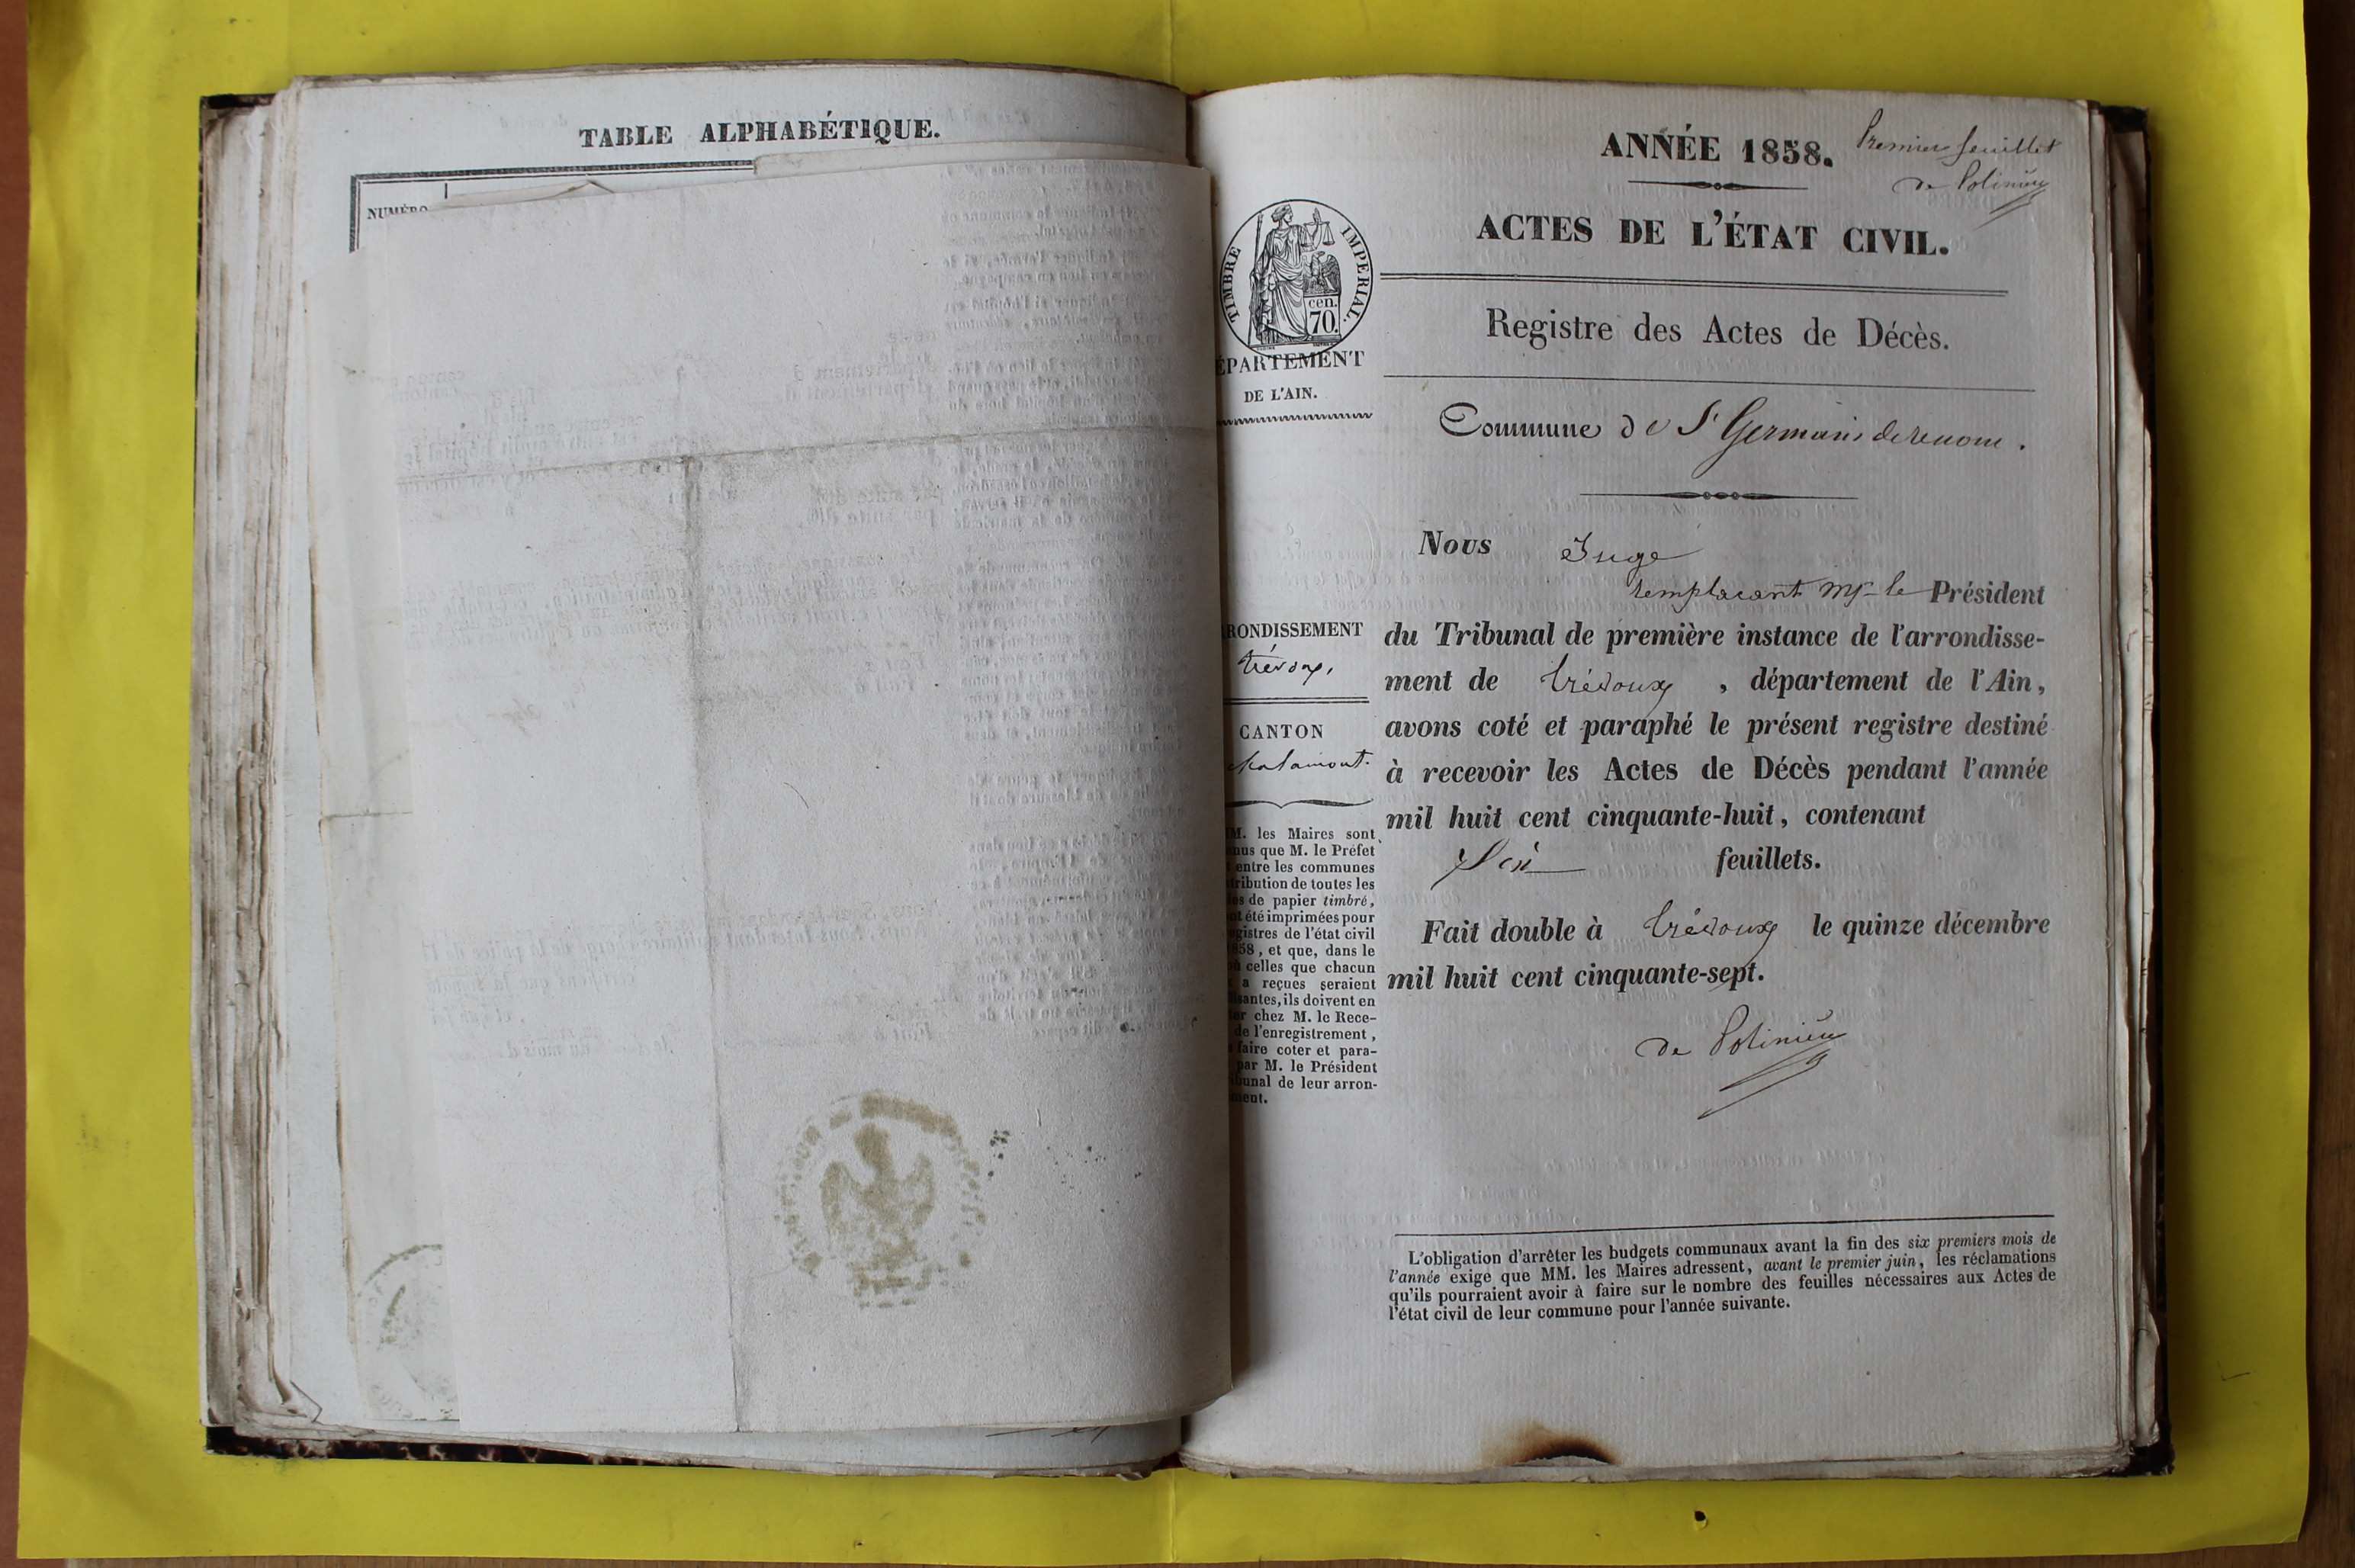 TABLE ALPHABÉTIQUE.
NUMÉRO
ANNÉE 1858.
Premier feuillet
de Polinière
ACTES DE L'ÉTAT CIVIL.
TIMBRE IMPERIAL.
cen.
70.
Registre des Actes de Décès.
ÉPARTEMENT
DE L'AIN.
Commune de St Germain de renom.
Nous Juge
remplacant Mr le Président
du Tribunal de première instance de l'arrondisse-
ment de trévoux, département de l'Ain,
avons coté et paraphé le présent registre destiné
à recevoir les Actes de Décès pendant l'année
mil huit cent cinquante-huit, contenant
Six feuillets.
Fait double à trévoux le quinze décembre
mil huit cent cinquante-sept.
de Polinière
RONDISSEMENT
trévoux,
CANTON
chalamont.
M. les Maires sont
nus que M. le Préfet
entre les communes
tribution de toutes les
es de papier timbré,
nt été imprimées pour
gistres de l'état civil
858, et que, dans le
celles que chacun
a reçues seraient
isantes, ils doivent en
er chez M. le Rece-
de l'enregistrement,
faire coter et para-
par M. le Président
ibunal de leur arron-
ment.
L'obligation d'arrêter les budgets communaux avant la fin des six premiers mois de
l'année exige que MM. les Maires adressent, avant le premier juin, les réclamations
qu'ils pourraient avoir à faire sur le nombre des feuilles nécessaires aux Actes de
l'état civil de leur commune pour l'année suivante.